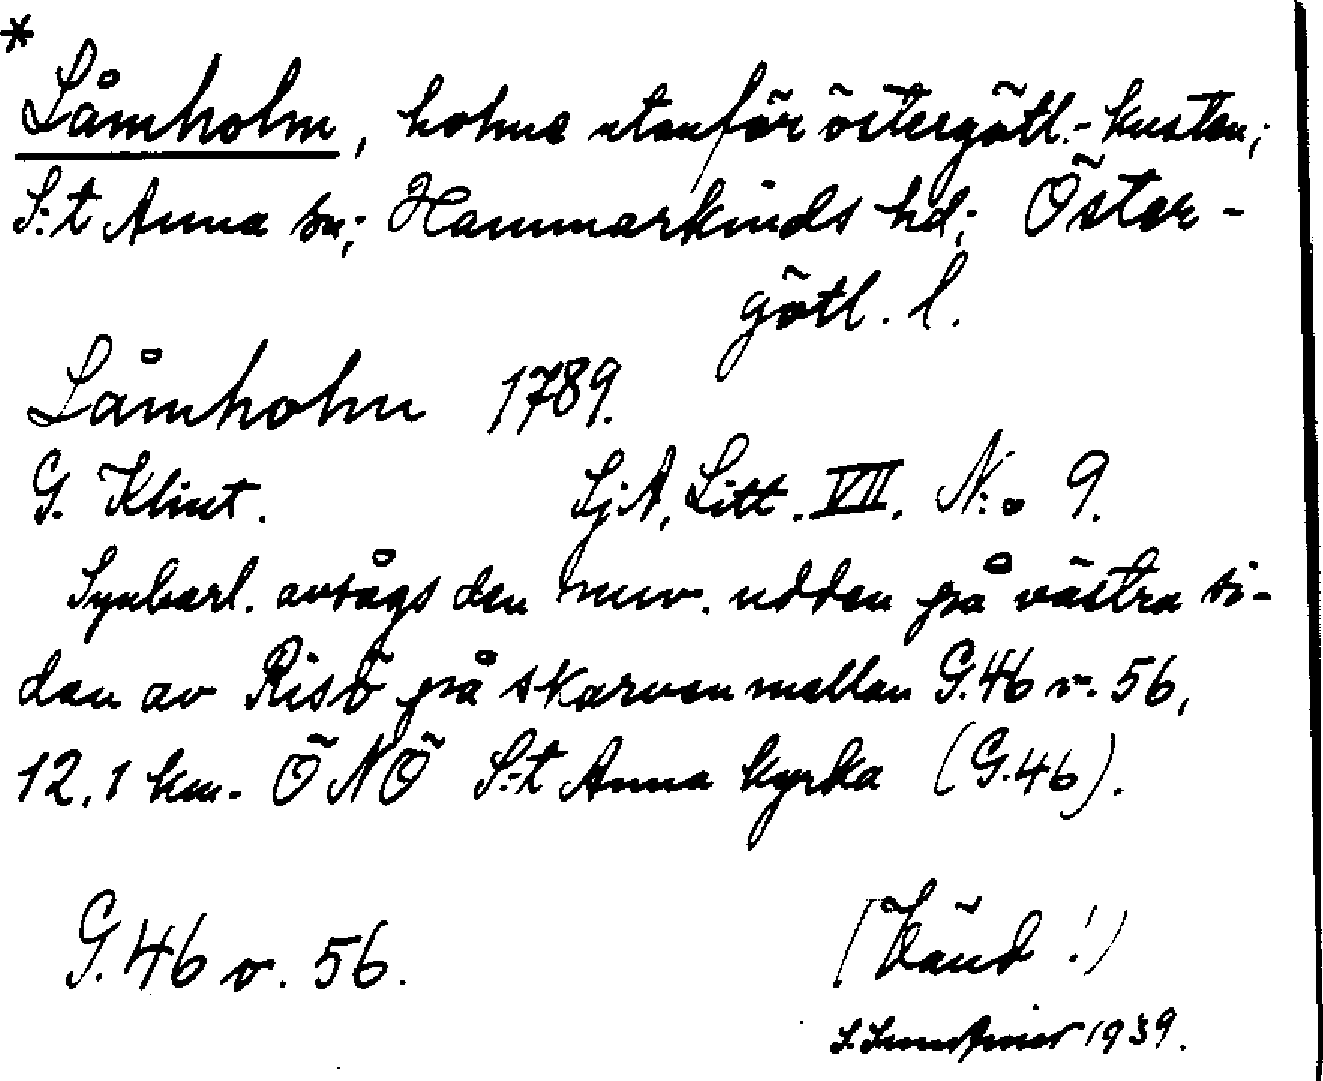 *
Låmholm, holme utanför östergötl.-kusten;
S:t Anna sn; Hammarkinds hd; Öster-
götl. l.
Låmholm 1789.
G. Klint. SjA, Litt. VII. N:o 9.
Synbarl. avsågs den nuv. udden på västra si-
dan av Risö på skarven mellan G.46 o. 56,
12,1 km. ÖNÖ S:t Anna kyrka (G.46).
G.46 o. 56. (Vänd!)
1939.